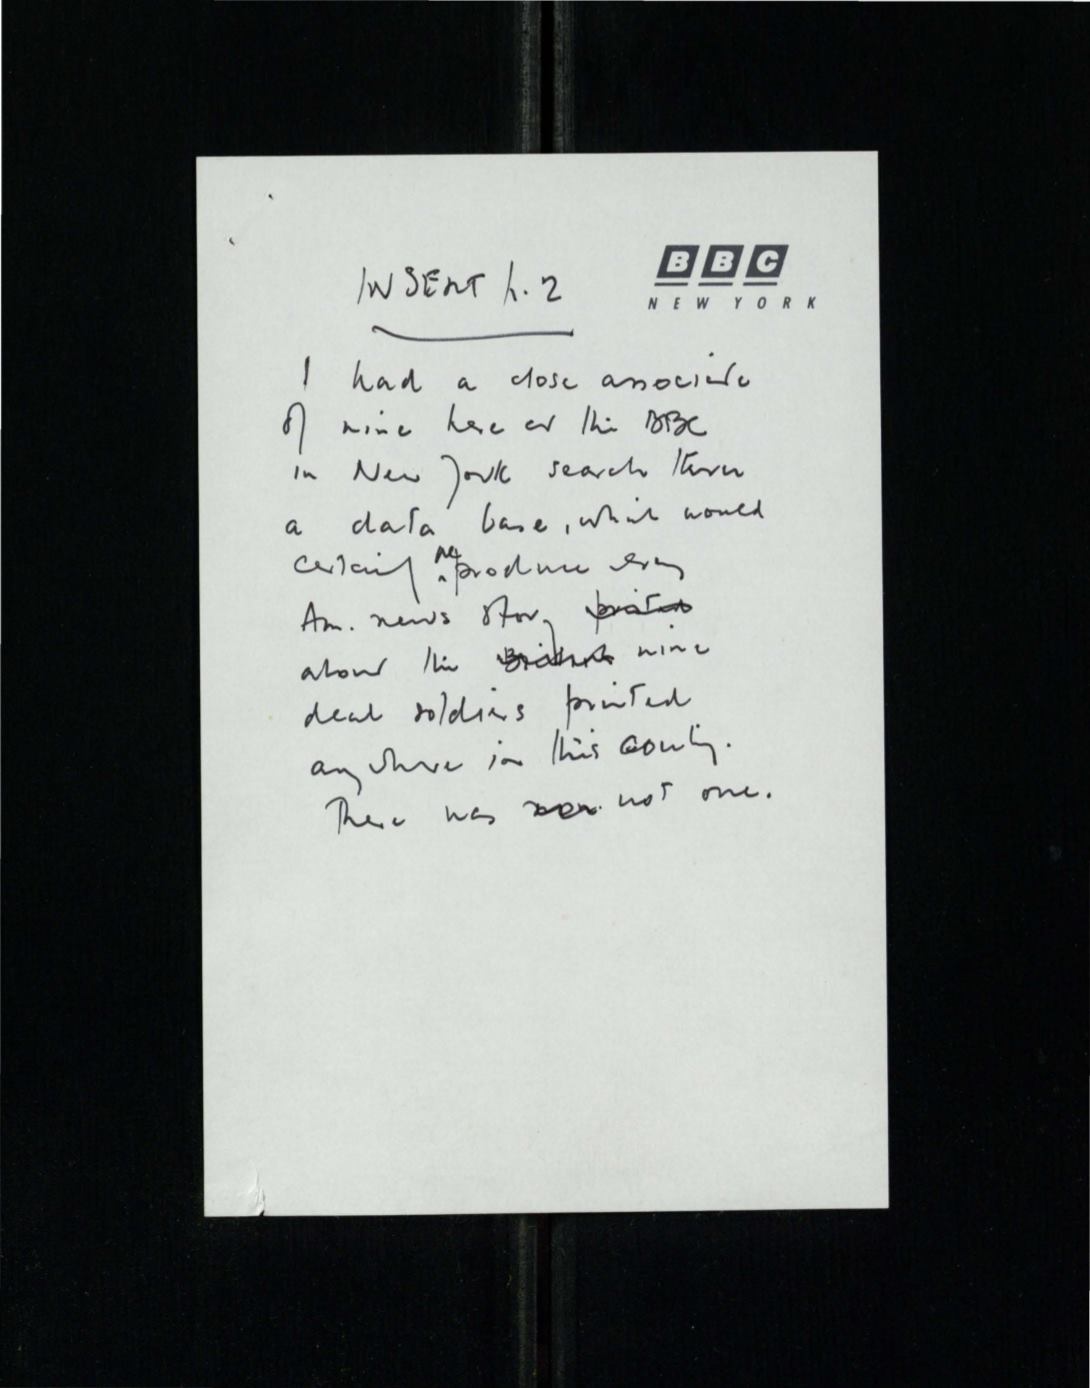 BBC
NEW YORK
INSERT p. 2
I had a close associate
of mine here at the BBC
in New York search thru
a data base, which would
certainly reproduce every
Am. news story printed
about the British nine
dead soldiers printed
anywhere in this country.
There was not one.